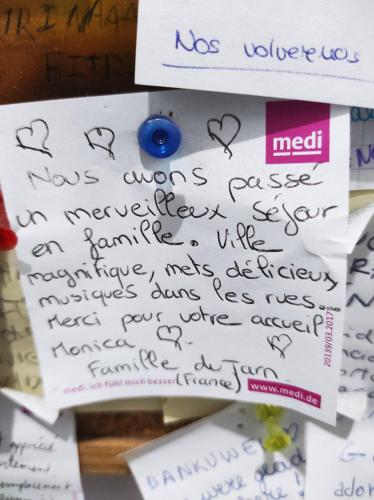 Nos volveremos
medi
Nous avons passé
un merveilleux séjour
en famille. Ville
magnifique, mets délicieux,
musiques dans les rues...
Merci pour votre accueil
Monica
Famille du Tarn
(France)
medi. ich fühl mich besser
www.medi.de
20139/03.2017
apprécié
DANKUWEL
were glad